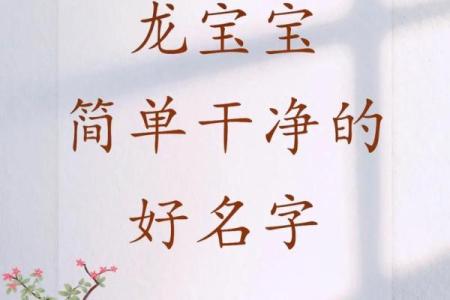 龙宝宝
简单干净的
好名字